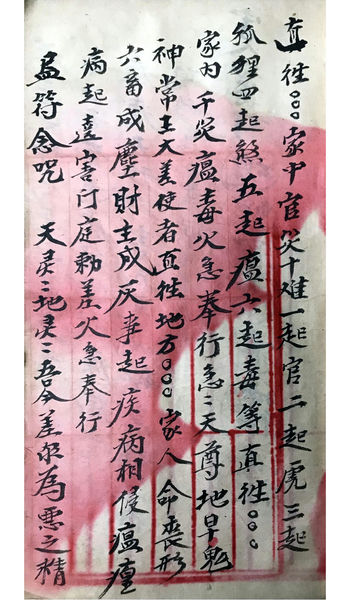 直往○○○家中官災十雄一起官二起虎三起
狐狸四起煞五起瘟六起毒等直往○○○
家内千災瘟毒火急奉行急〻天尊地早鬼
神常主大差使者直往地方○○○家人命喪形
六畜成塵財主成灰事起疾病相侵瘟瘟
病起遠害门庭勅差火急奉行
孟符念咒 天灵〻地灵〻吾今差你為悪之精